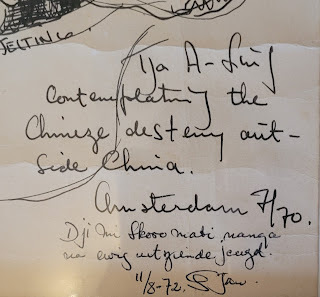 JELTING.
Contemplating the
Chineze desteny out-
side China.
Amsterdam 7/70.
Dji mi Skoro mati nanga
na ewig uitziende jeugd.
11/8-72.